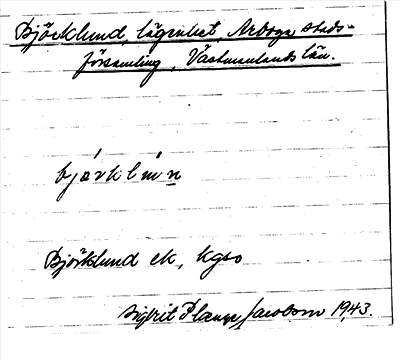 Björklund, lägenhet, Arboga stads-
församling, Västmanlands län.
bjö́rklún
Björklund ek, kgso
Sigfrid Jacobson 1943.